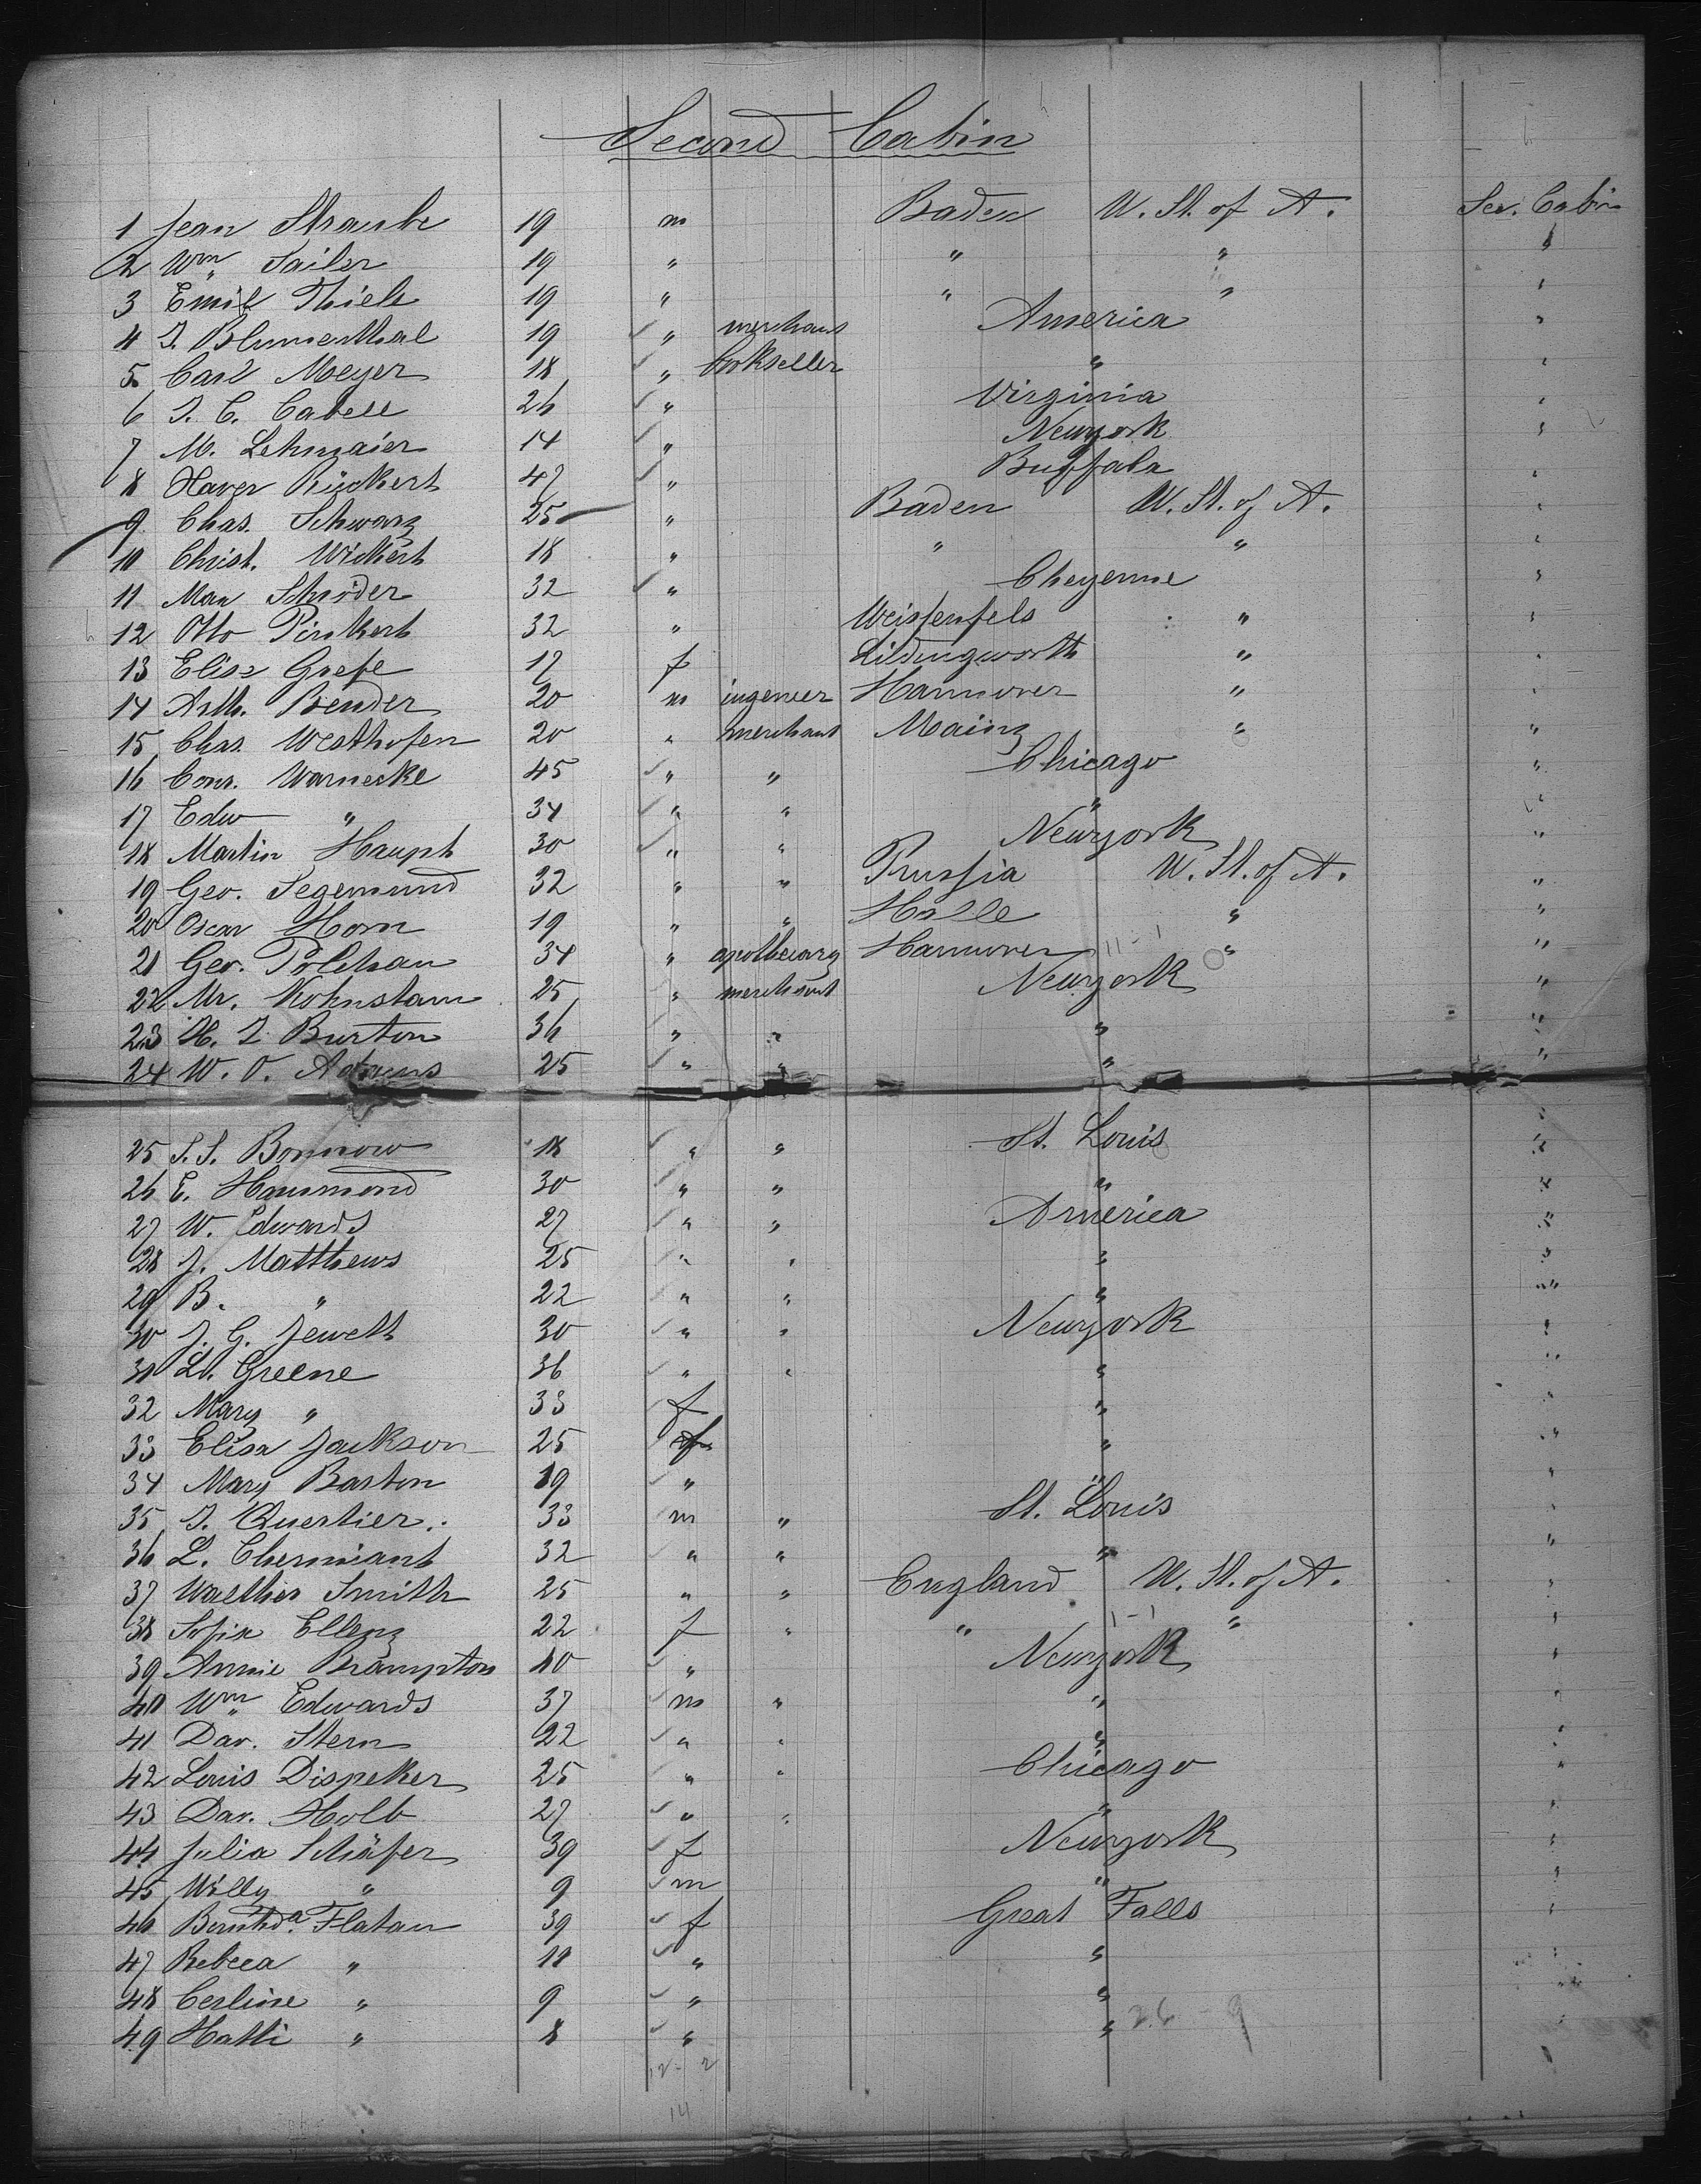 Second Cabin
1 Jean Straube 19 m Baden U. St. of A. Sec. Cabin
2 Wm Sailer 19 " " " "
3 Emil Thiele 19 " " " "
4 J. Blumenthal 19 " merchant America "
5 Carl Meyer 18 " bookseller " "
6 J. C. Cabell 26 " Virginia "
7 M. Lehmaier 14 " Newyork "
8 Xaver Rückert 47 " Buffalo "
9 Chas. Schwarz 25 " Baden U. St. of A. "
10 Christ. Wickert 18 " " " "
11 Max Schröder 32 " Cheyenne "
12 Otto Pinkert 32 " Weissenfels " "
13 Elise Grefe 17 f Lildingworth " "
14 Arth. Bender 20 m ingeneer Hannover " "
15 Chas. Westhofen 20 " merchant Mainz " "
16 Conr. Warnecke 45 " " Chicago "
17 Edw " 34 " " " "
18 Martin Haupt 30 " " Newyork "
19 Geo. Segemund 32 " " Prussia U. St. of A. "
20 Oscar Horn 19 " " Halle " "
21 Geo. Polchau 34 " apothecary Hannover " "
22 Mr. Kohnstam 25 " merchant Newyork "
23 H. J. Burton 36 " " " "
24 W. O. Adams 25 " " " "
25 S. S. Bonnow 18 " " St. Louis "
26 E. Hammond 30 " " " "
27 W. Edwards 27 " " America "
28 J. Matthews 25 " " " "
29 B. " 22 " " " "
30 J. G. Jewett 30 " " Newyork "
31 L. Greene 36 " " " "
32 Mary " 33 f " "
33 Elisa Jackson 25 f " "
34 Mary Barton 19 " " "
35 J. Quertier 33 m " St. Louis "
36 L. Chermiant 32 " " " "
37 Walther Smith 25 " " England U. St. of A. "
38 Sofie Ellenz 22 f " " " "
39 Annie Brampton 40 " Newyork "
40 Wm Edwards 37 m " " "
41 Dav. Stern 22 " " " "
42 Louis Dispeker 25 " " Chicago "
43 Dav. Holb 27 " " " "
44 Julia Schäfer 39 f Newyork "
45 Willy " 9 m " "
46 Bernhda Flatau 39 f Great Falls "
47 Rebeca " 11 " " "
48 Cerline " 9 " " "
49 Hatti " 8 " " "
26 - 9
12 - 2
14